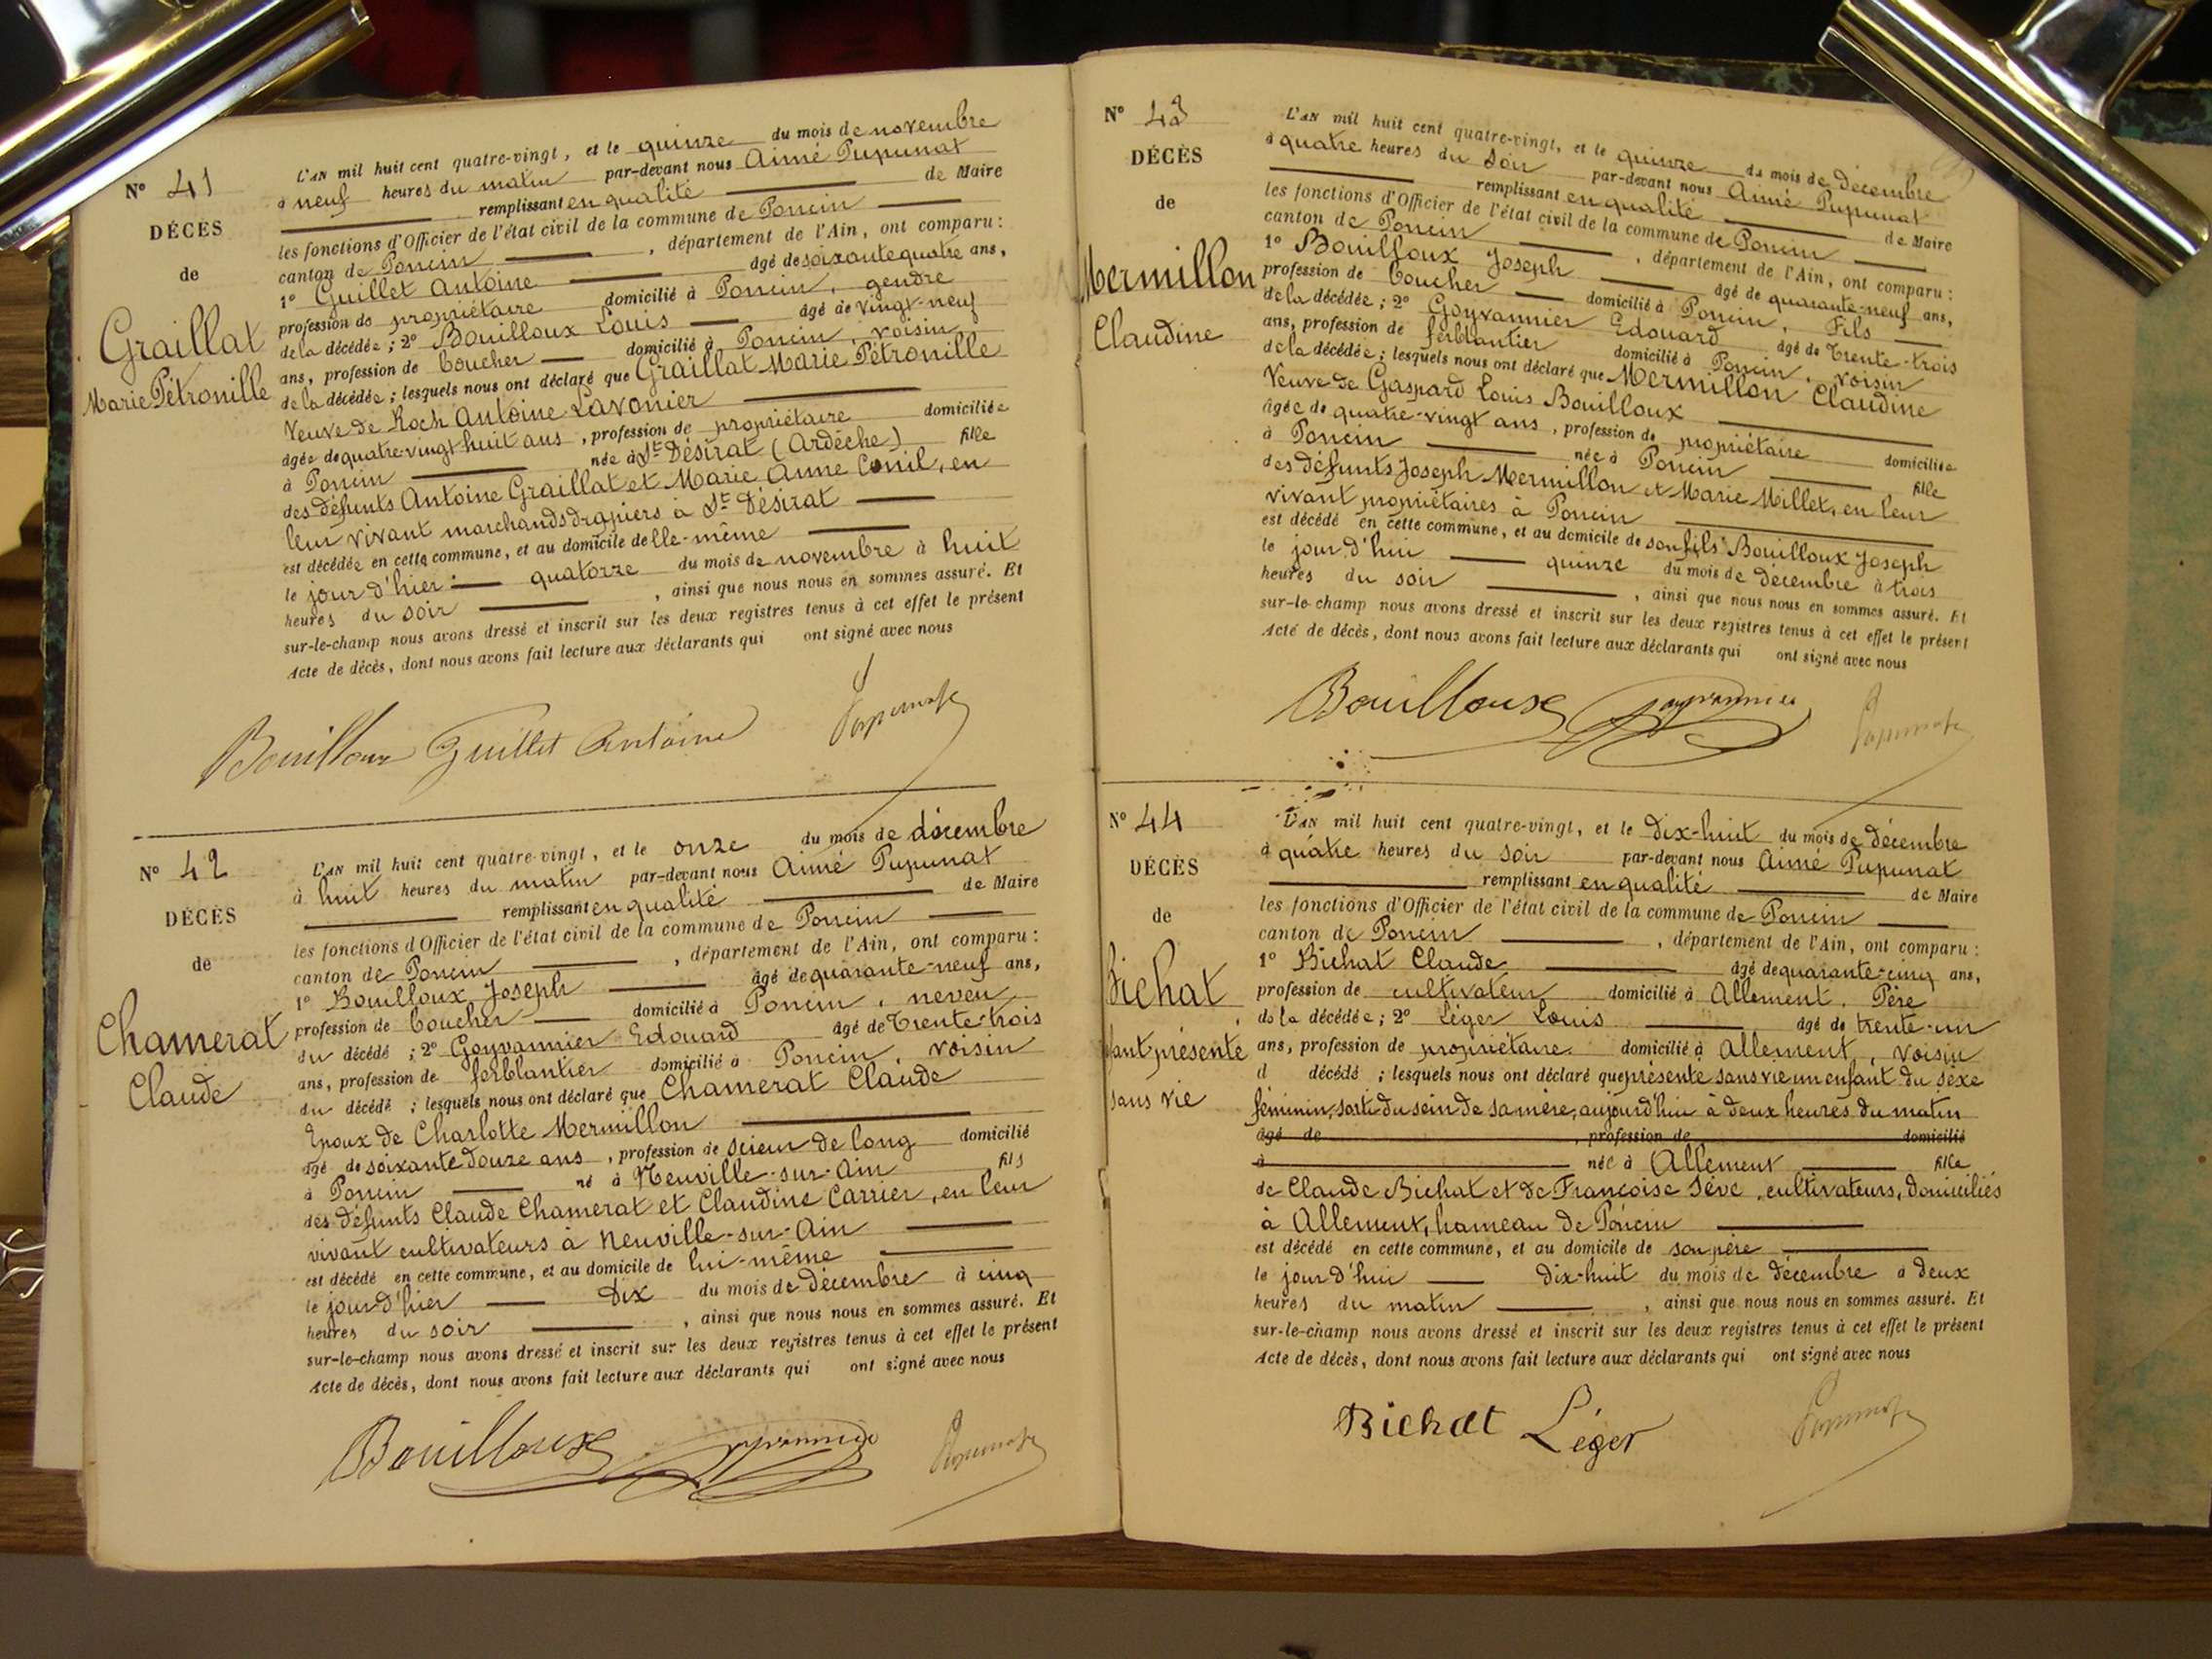 N° 41
DÉCÈS
de
Graillat
Marie Pétronille
L'AN mil huit cent quatre-vingt, et le quinze du mois de novembre
à neuf heures du matin par-devant nous Aimé Pupunat
remplissant en qualité de Maire
les fonctions d'Officier de l'état civil de la commune de Poncin
canton de Poncin, département de l'Ain, ont comparu :
1° Guillet Antoine âgé de soixante quatre ans,
profession de propriétaire domicilié à Poncin, gendre
de la décédée ; 2° Bouilloux Louis âgé de vingt-neuf
ans, profession de boucher domicilié à Poncin, voisin
de la décédée ; lesquels nous ont déclaré que Graillat Marie Pétronille
Veuve de Roch Antoine Lavonier
âgée de quatre-vingt huit ans, profession de propriétaire domiciliée
à Poncin née à St Désirat (Ardèche) fille
des défunts Antoine Graillat et Marie Anne Conil, en
leur vivant marchands drapiers à St Désirat
est décédée en cette commune, et au domicile de elle-même
le jour d'hier quatorze du mois de novembre à huit
heures du soir, ainsi que nous nous en sommes assuré. Et
sur-le-champ nous avons dressé et inscrit sur les deux registres tenus à cet effet le présent
Acte de décès, dont nous avons fait lecture aux déclarants qui ont signé avec nous
Bouilloux Guillet Antoine Pupunat
N° 42
DÉCÈS
de
Chamerat
Claude
L'AN mil huit cent quatre-vingt, et le onze du mois de décembre
à huit heures du matin par-devant nous Aimé Pupunat
remplissant en qualité de Maire
les fonctions d'Officier de l'état civil de la commune de Poncin
canton de Poncin, département de l'Ain, ont comparu :
1° Bouilloux Joseph âgé de quarante-neuf ans,
profession de boucher domicilié à Poncin, neveu
du décédé ; 2° Goyvannier Edouard âgé de trente-trois
ans, profession de ferblantier domicilié à Poncin, voisin
du décédé ; lesquels nous ont déclaré que Chamerat Claude
Epoux de Charlotte Mermillon
âgé de soixante douze ans, profession de scieur de long domicilié
à Poncin né à Neuville-sur-Ain fils
des défunts Claude Chamerat et Claudine Carrier, en leur
vivant cultivateurs à Neuville-sur-Ain
est décédé en cette commune, et au domicile de lui-même
le jour d'hier dix du mois de décembre à cinq
heures du soir, ainsi que nous nous en sommes assuré. Et
sur-le-champ nous avons dressé et inscrit sur les deux registres tenus à cet effet le présent
Acte de décès, dont nous avons fait lecture aux déclarants qui ont signé avec nous
Bouilloux Goyvannier Pupunat
N° 43
DÉCÈS
de
Mermillon
Claudine
L'AN mil huit cent quatre-vingt, et le quinze du mois de décembre
à quatre heures du soir par-devant nous Aimé Pupunat
remplissant en qualité de Maire
les fonctions d'Officier de l'état civil de la commune de Poncin
canton de Poncin, département de l'Ain, ont comparu :
1° Bouilloux Joseph âgé de quarante-neuf ans,
profession de boucher domicilié à Poncin, Fils
de la décédée ; 2° Goyvannier Edouard âgé de trente-trois
ans, profession de ferblantier domicilié à Poncin, voisin
de la décédée ; lesquels nous ont déclaré que Mermillon Claudine
Veuve de Gaspard Louis Bouilloux
âgée de quatre-vingt ans, profession de propriétaire domiciliée
à Poncin née à Poncin fille
des défunts Joseph Mermillon et Marie Millet, en leur
vivant propriétaires à Poncin
est décédé en cette commune, et au domicile de son fils Bouilloux Joseph
le jour d'hui quinze du mois de décembre à trois
heures du soir, ainsi que nous nous en sommes assuré. Et
sur-le-champ nous avons dressé et inscrit sur les deux registres tenus à cet effet le présent
Acte de décès, dont nous avons fait lecture aux déclarants qui ont signé avec nous
Bouilloux Goyvannier Pupunat
N° 44
DÉCÈS
de
Bichat
fant présenté
sans vie
L'AN mil huit cent quatre-vingt, et le dix-huit du mois de décembre
à quatre heures du soir par-devant nous Aimé Pupunat
remplissant en qualité de Maire
les fonctions d'Officier de l'état civil de la commune de Poncin
canton de Poncin, département de l'Ain, ont comparu :
1° Bichat Claude âgé de quarante-cinq ans,
profession de cultivateur domicilié à Allement, Père
de la décédée ; 2° Léger Louis âgé de trente-un
ans, profession de propriétaire domicilié à Allement, voisin
d décédé ; lesquels nous ont déclaré que présente sans vie un enfant du sexe
féminin, sorti du sein de sa mère, aujourd'hui à deux heures du matin
âgé de , profession de domicilié
à née à Allement fille
de Claude Bichat et de Françoise Sève, cultivateurs, domiciliés
à Allement, hameau de Poncin
est décédé en cette commune, et au domicile de son père
le jour d'hui dix-huit du mois de décembre à deux
heures du matin, ainsi que nous nous en sommes assuré. Et
sur-le-champ nous avons dressé et inscrit sur les deux registres tenus à cet effet le présent
Acte de décès, dont nous avons fait lecture aux déclarants qui ont signé avec nous
Bichat Léger Pupunat